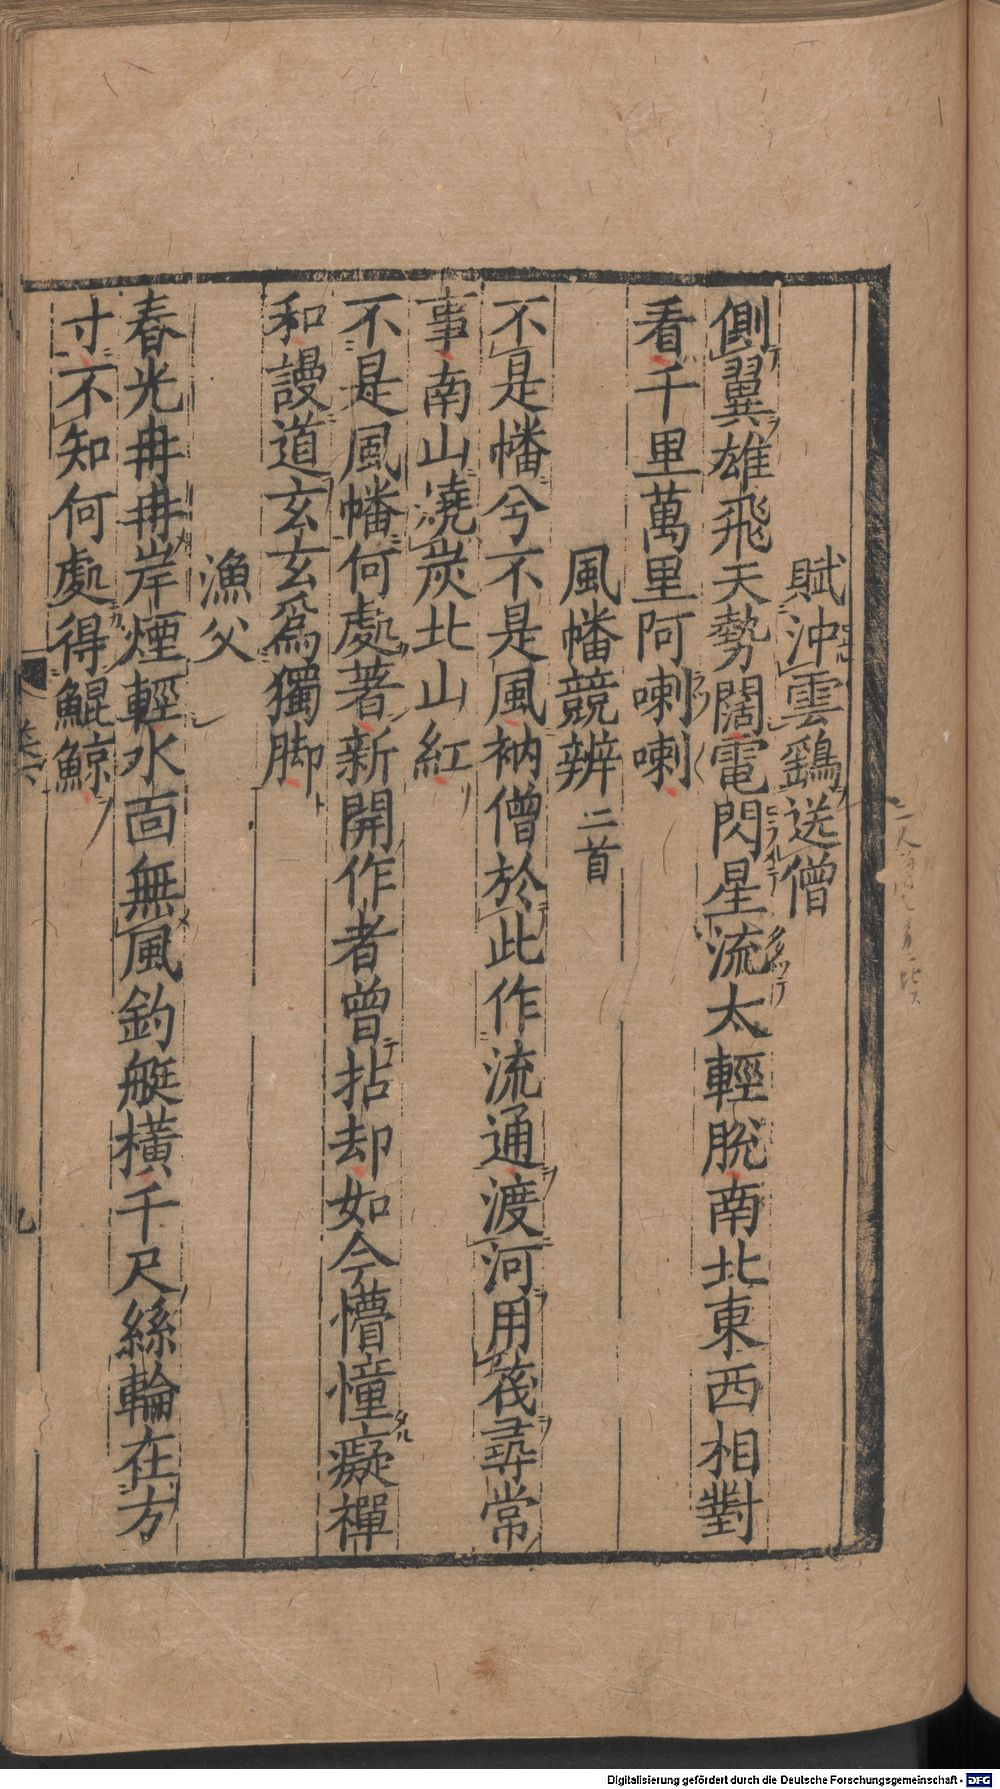 賦沖雲鷂送僧
側翼雄飛天勢闊電閃星流太輕脫南北東西相對
看千里萬里阿喇喇
風幡競辨二首
不是幡兮不是風衲僧於此作流通渡河用筏尋常
事南山燒炭北山紅
不是風幡何處著新開作者曾拈却如今懵憧癡禪
和謾道玄玄為獨脚
漁父
春光冉冉岸煙輕水面無風釣艇橫千尺絲輪在方
寸不知何處得鯤鯨
Digitalisierung gefördert durch die Deutsche Forschungsgemeinschaft - DFG